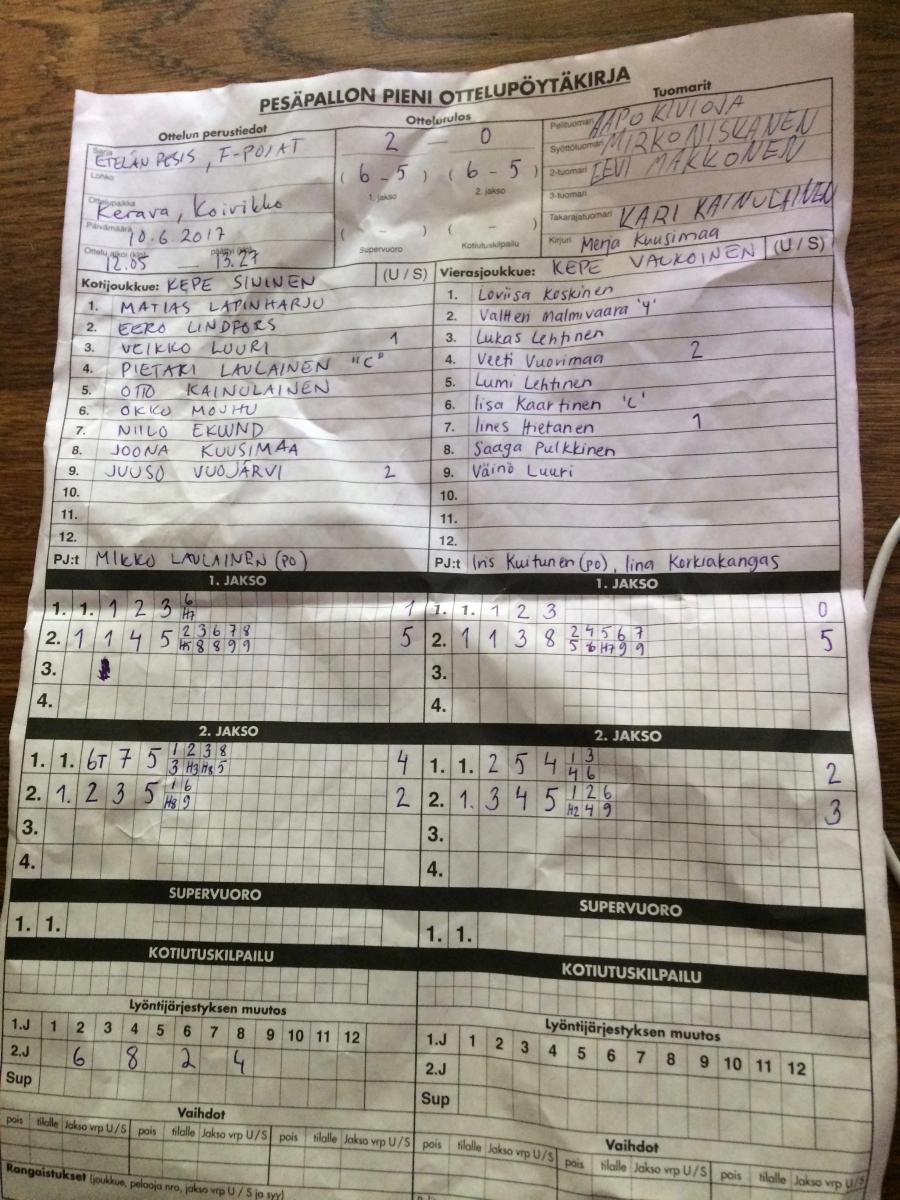 PESÄPALLON PIENI OTTELUPÖYTÄKIRJA
Ottelun perustiedot
Sarja ETELÄN PESIS, F-POJAT
Lohko
Ottelupaikka Kerava, Koivikko
Päivämäärä 10.6.2017
Ottelu alkoi (klo) 12.05 — päättyi (klo) 13.27
Ottelutulos
2 — 0
(6 - 5) (6 - 5)
1. jakso 2. jakso
( - ) ( - )
Supervuoro Kotiutuskilpailu
Tuomarit
Pelituomari AAPO KIVIOJA
Syöttötuomari MIRKO NISKANEN
2-tuomari EEVI MAKKONEN
3-tuomari
Takarajatuomari KARI KAINULAINEN
Kirjuri Merja Kuusimaa
Kotijoukkue: KEPE SININEN (U / S)
1. MATIAS LAPINHARJU
2. EERO LINDFORS
3. VEIKKO LUURI 1
4. PIETARI LAULAINEN "C"
5. OTTO KAINULAINEN
6. OKKO MOUHU
7. NIILO EKLUND
8. JOONA KUUSIMAA
9. JUUSO VUOJÄRVI 2
10.
11.
12.
PJ:t MIKKO LAULAINEN (PO)
Vierasjoukkue: KEPE VALKOINEN (U / S)
1. Loviisa Koskinen
2. Valtteri Malmivaara
3. Lukas Lehtinen
4. Veeti Vuorimaa 2
5. Lumi Lehtinen
6. Iisa Kaartinen 'C'
7. Iines Hietanen 1
8. Saaga Pulkkinen
9. Väinö Luuri
10.
11.
12.
PJ:t Iris Kuitunen (po), Iina Korkiakangas
1. JAKSO
1. 1. 1 2 3 6 H7 1
2. 1 1 4 5 2 3 6 7 8 H5 8 8 9 9 5
3.
4.
1. JAKSO
1. 1. 1 2 3 0
2. 1 1 3 8 2 4 5 6 7 5 6 H7 9 9 5
3.
4.
2. JAKSO
1. 1. 6T 7 5 1 2 3 8 3 H3 H8 5 4
2. 1. 2 3 5 1 6 H8 9 2
3.
4.
2. JAKSO
1. 1. 2 5 4 1 3 4 6 2
2. 1. 3 4 5 1 2 6 H2 4 9 3
3.
4.
SUPERVUORO
1. 1.
SUPERVUORO
1. 1.
KOTIUTUSKILPAILU
KOTIUTUSKILPAILU
Lyöntijärjestyksen muutos
1.J 1 2 3 4 5 6 7 8 9 10 11 12
2.J 6 8 2 4
Sup
Lyöntijärjestyksen muutos
1.J 1 2 3 4 5 6 7 8 9 10 11 12
2.J
Sup
Vaihdot
pois tilalle Jakso vrp U / S pois tilalle Jakso vrp U / S pois tilalle Jakso vrp U / S
Vaihdot
pois tilalle Jakso vrp U / S pois tilalle Jakso vrp U / S pois tilalle Jakso vrp U / S
Rangaistukset (joukkue, pelaaja nro, jakso vrp U / S ja syy)